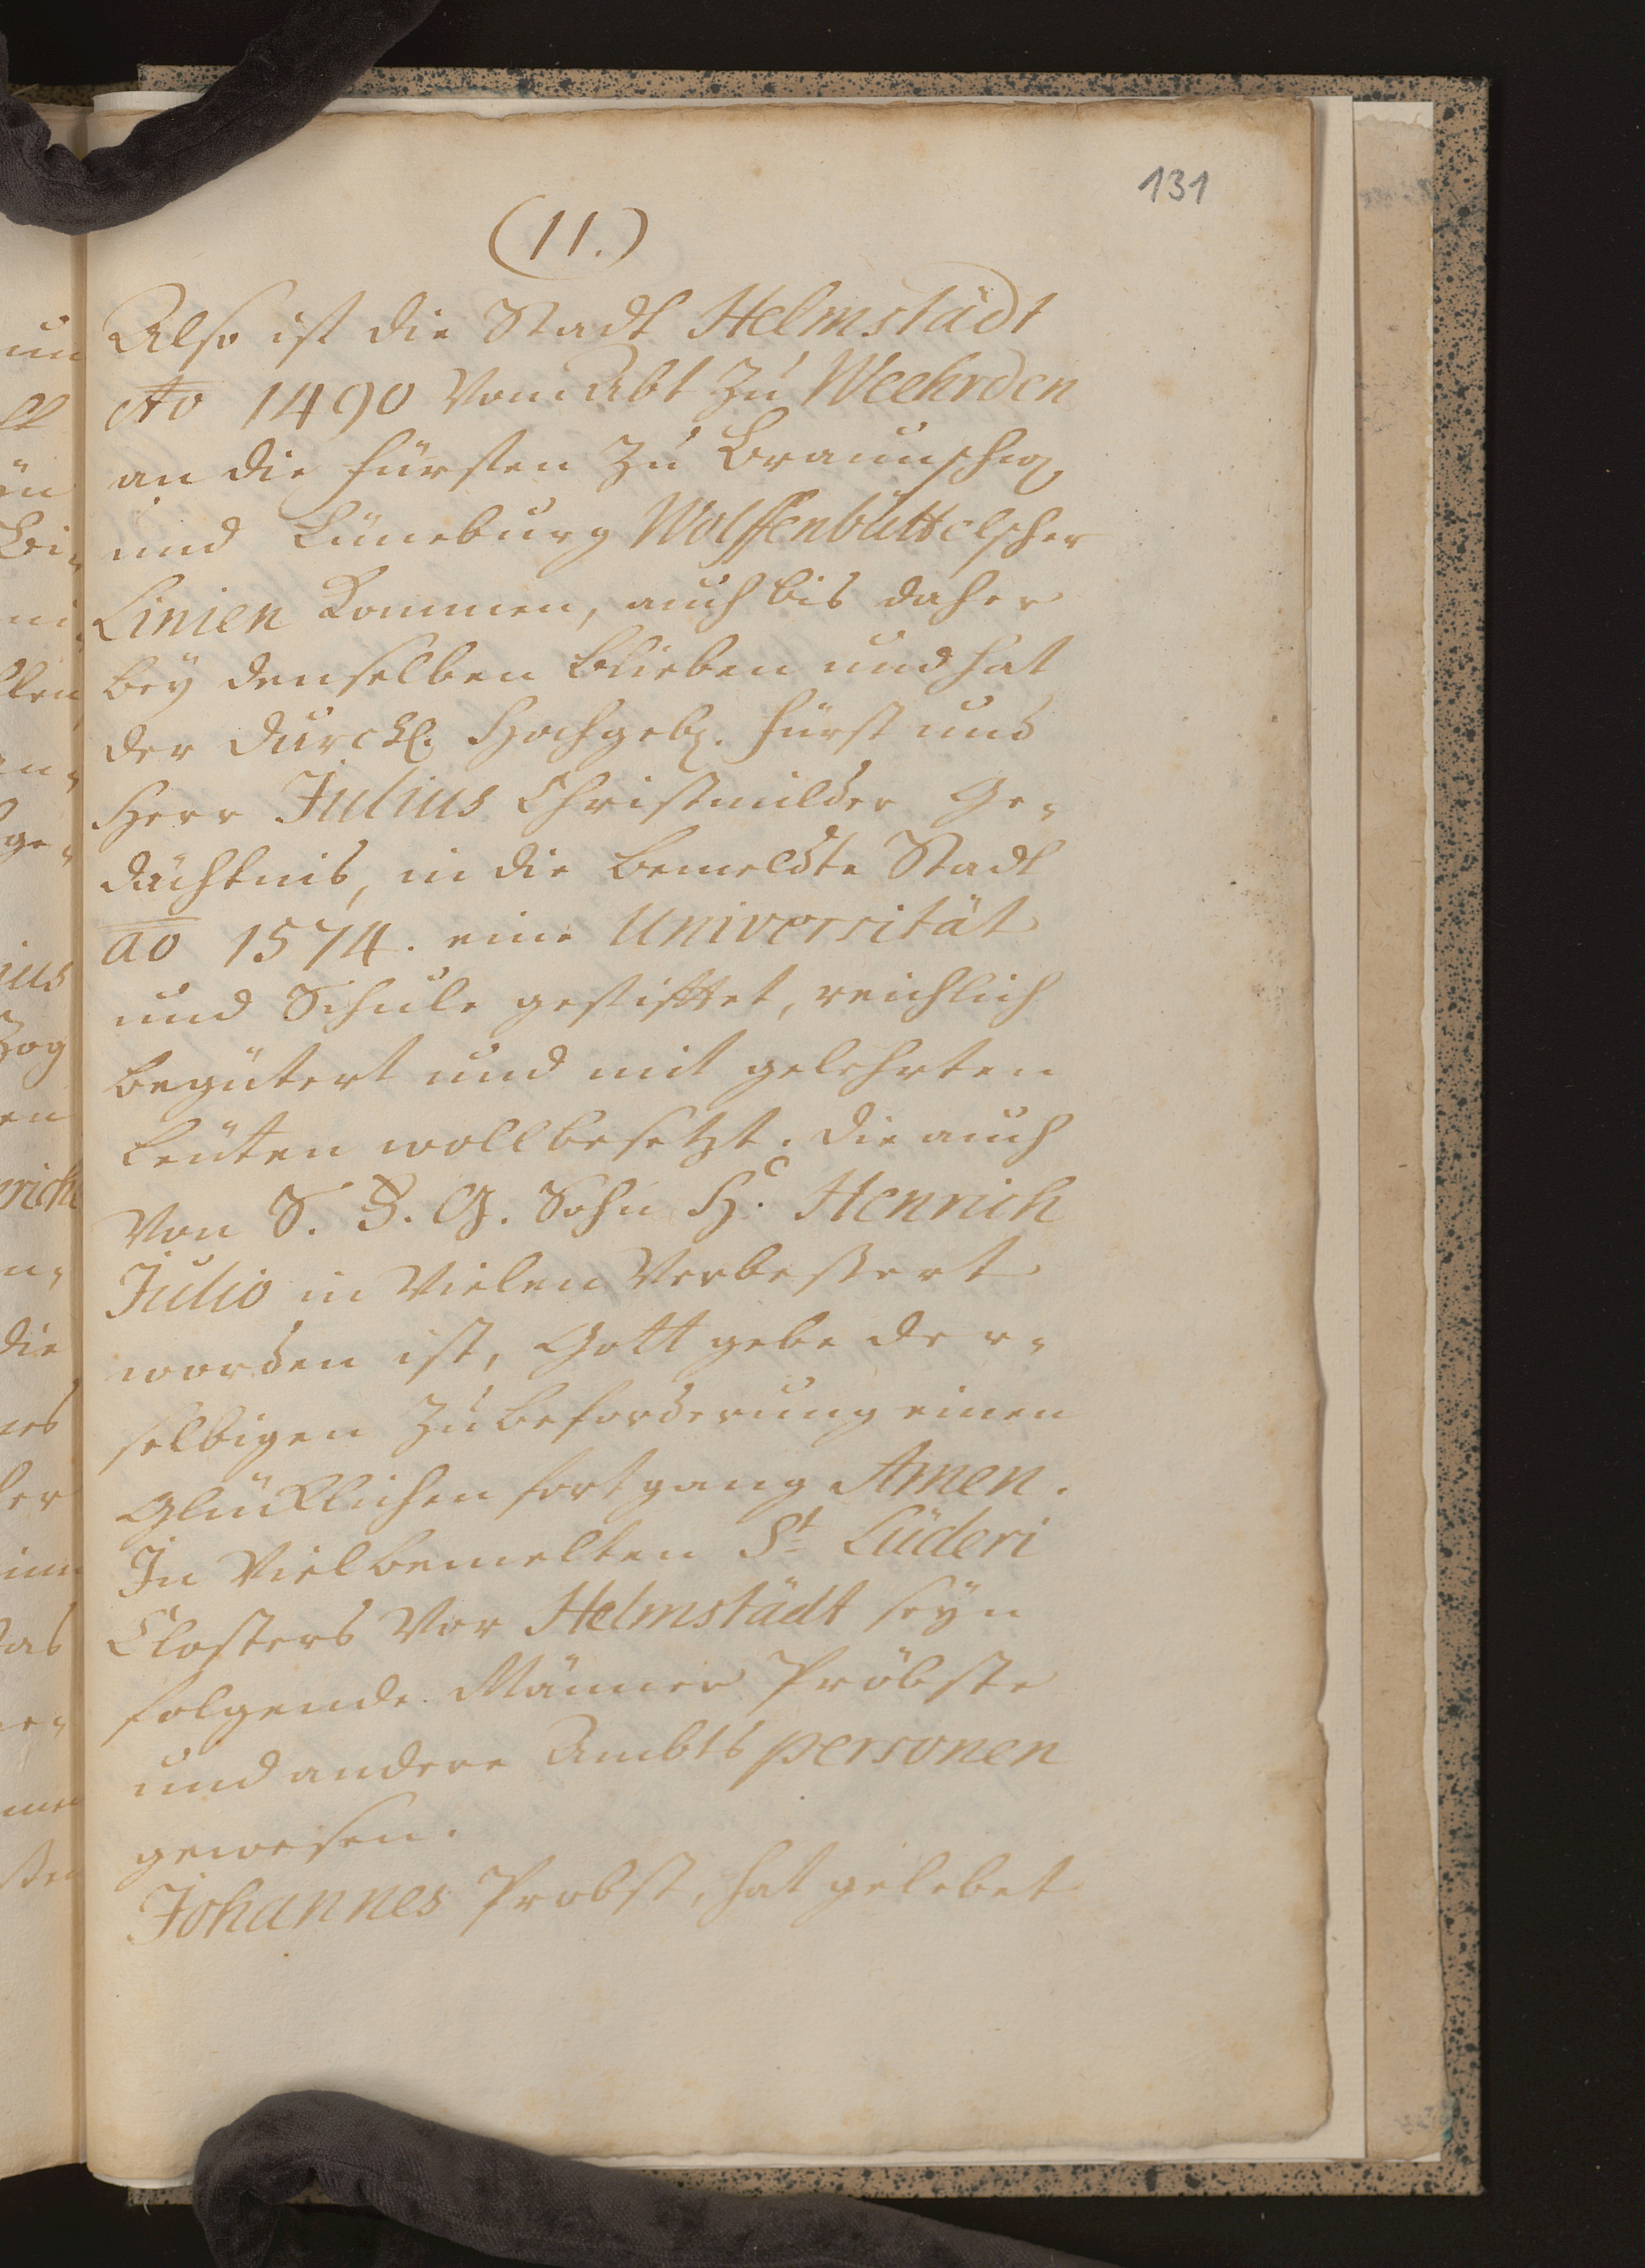 131
(11.)
Also ist die Stadt Helmstädt
Ao 1490 Vom Abt zu Weehrden
an die Fürsten zu Braunschw.
und Lüneburg Wolffenbüttelscher
Linien kommen, auch bis daher
bey denselben blieben und hat
der Durchl. Hochgeb. Fürst und
Herr Julius Christmilder Ge-
dächtnis, in die bemeldte Stadt
ao 1574. eine Universität
und Schule gestifftet, reichlich
begütert und mit gelehrten
Leuten woll besetzt. die auch
Von S. F. G. Sohn H. Henrich
Julio in Vielen Verbeßert
worden ist, Gott gebe der-
selbigen zu beforderung einen
Glücklichen fortgang Amen.
In Vielbemelten St. Lüderi
Closters Vor Helmstädt seyn
folgende Männer Pröbste
und andere Ambts personen
gewesen.
Johannes Probst, hat gelebet